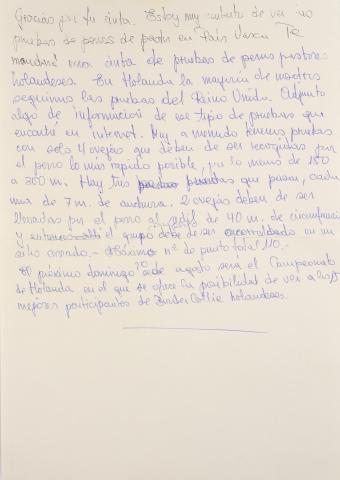 Gracias por su cinta. Estoy muy contento de ver
pruebas de perros de pastor en País Vasco Te
mandaré una cinta de pruebas de perros pastores
holandeses. En Holanda la mayoría de nosotros
seguimos las pruebas del Reino Unido. Adjunto
algo de información de ese tipo de pruebas que
encontré en internet. Muy a menudo tenemos pruebas
con solo 4 ovejas que deben de ser recogidas por
el perro lo más rápido posible, por lo menos de 150
a 300 m. Hay tres puertas que pasar, cada
una de 7 m. de anchura. 2 ovejas deben de ser
llevadas por el perro al redil de 40 m. de circunferencia
y el grupo debe de ser encerrado en un
sitio cerrado. - Máximo nº de punto total 110. -
El próximo domingo de agosto será el Campeonato
de Holanda en el que se ofrece la posibilidad de ver a los
mejores participantes de Border Collie holandeses.